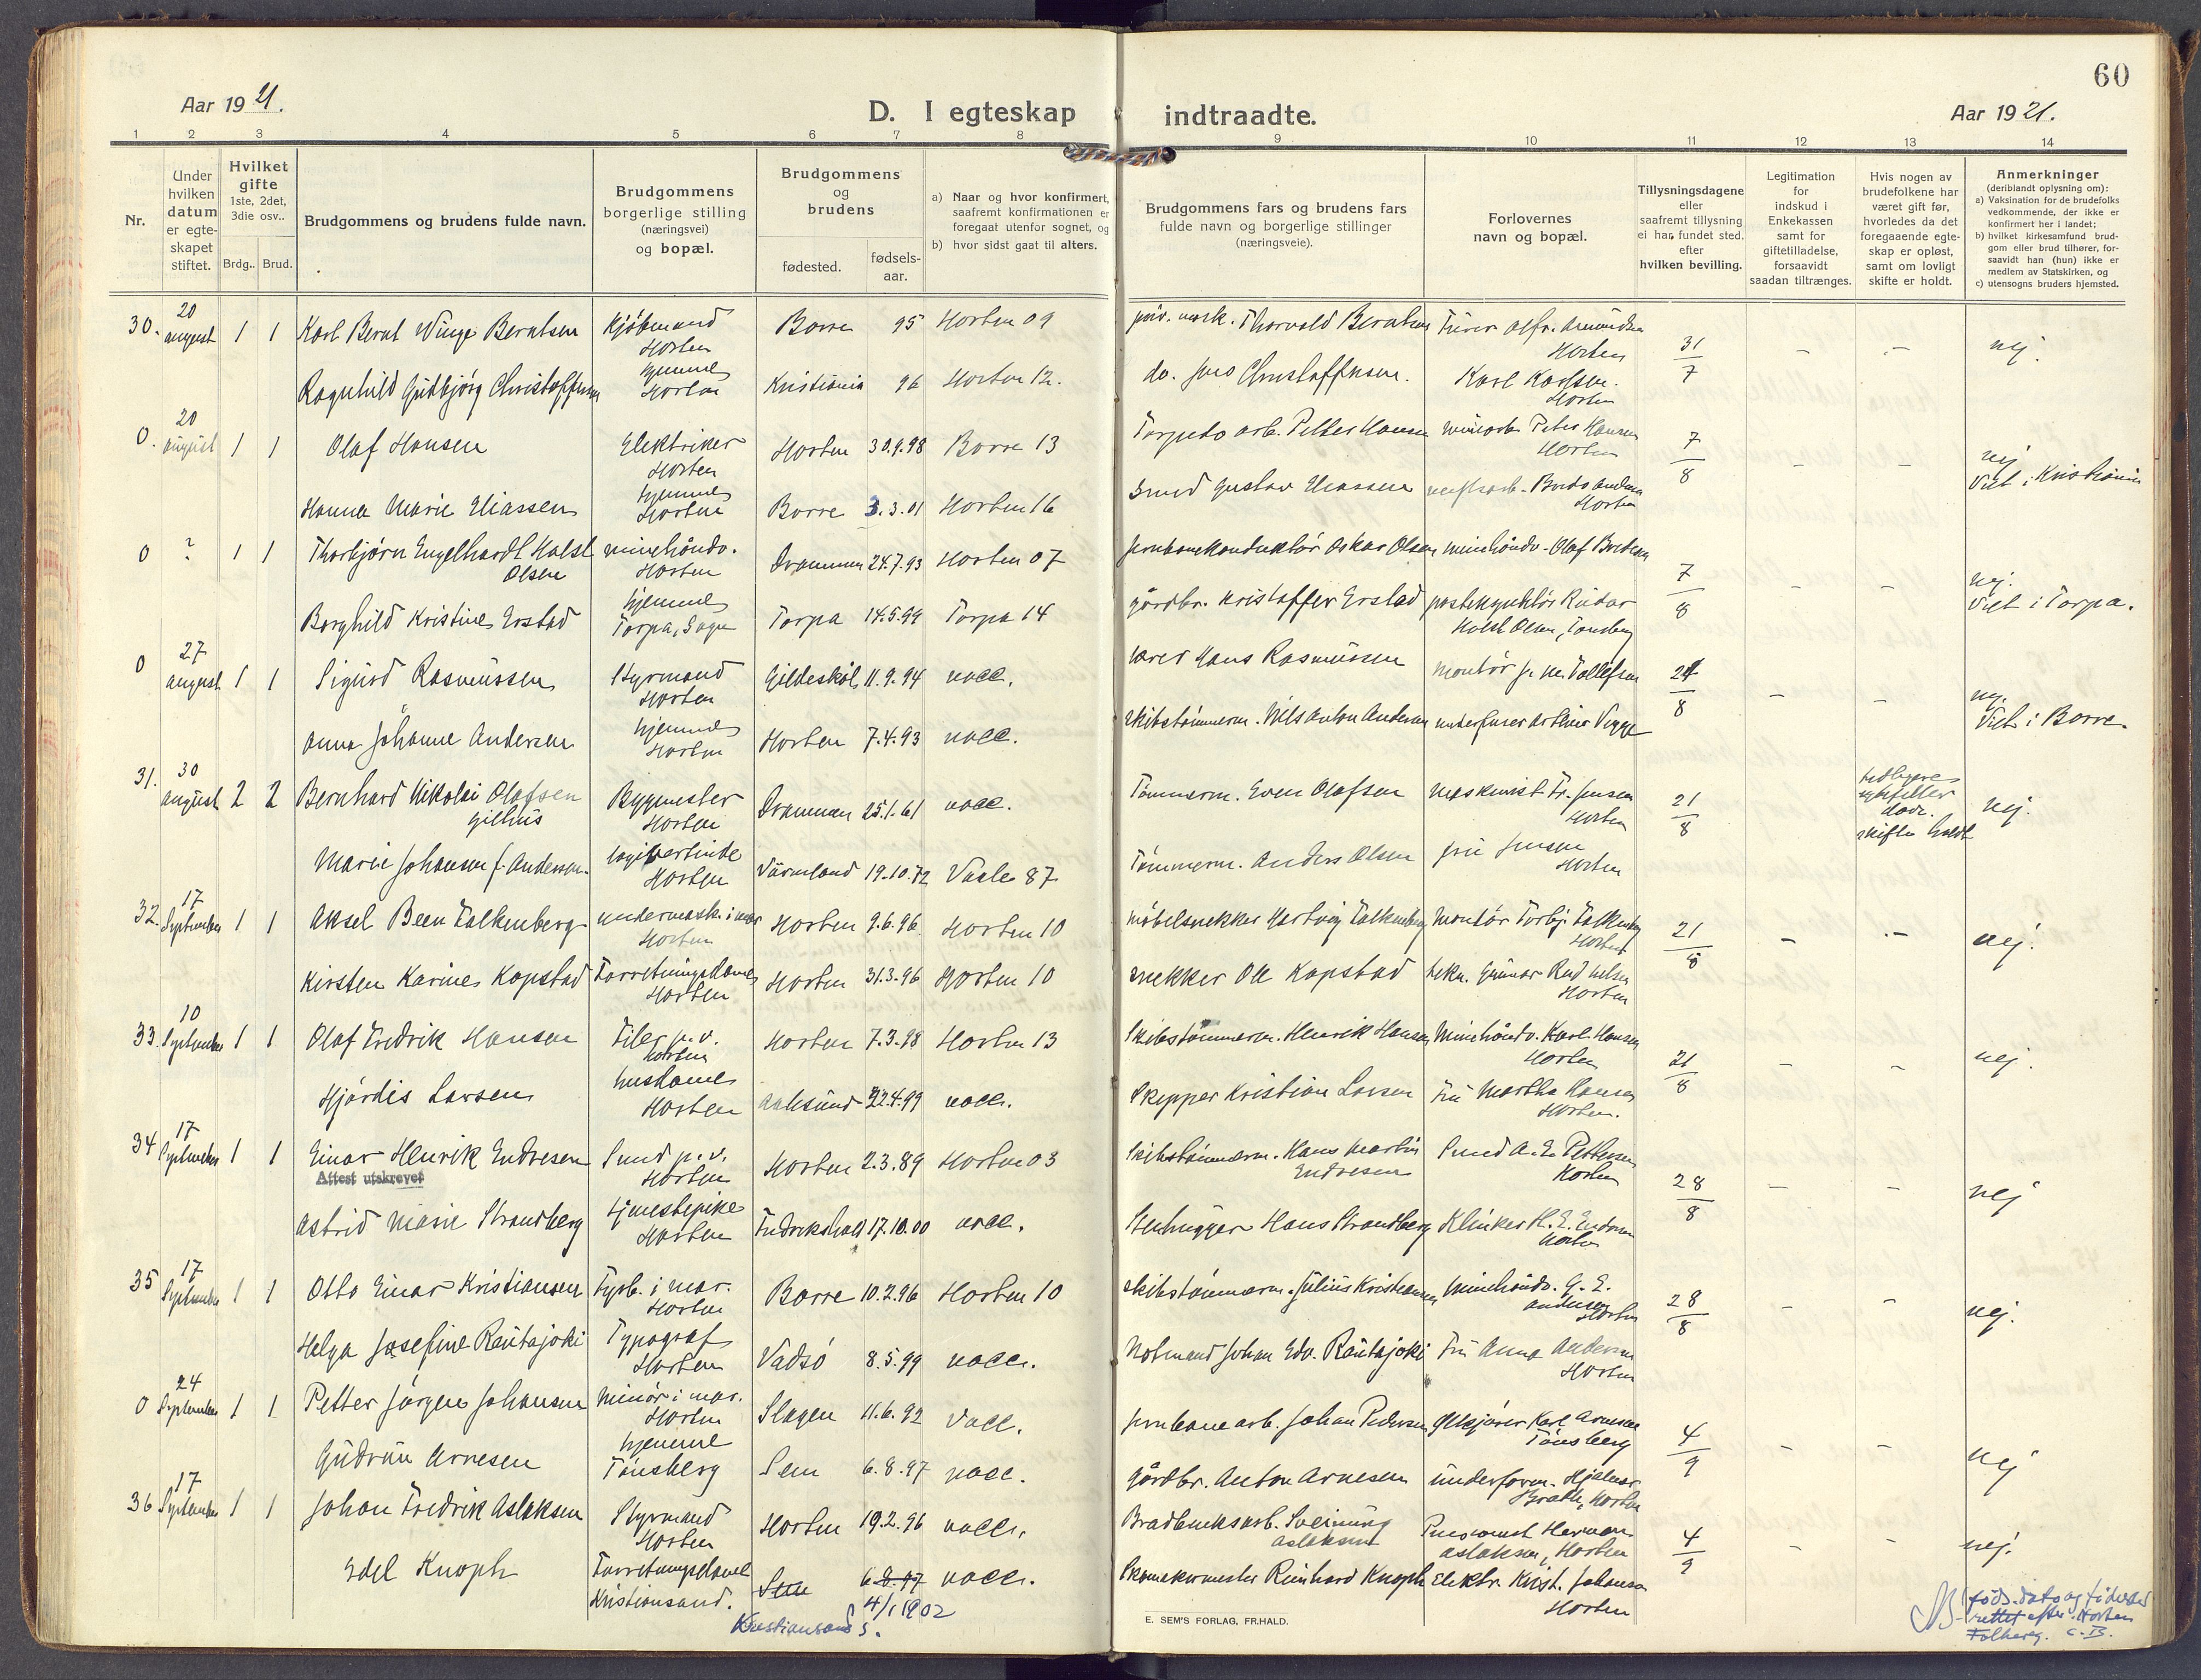 60
Aar 1921.
D. I egteskap indtraadte.
Aar 1921.
1 2 3 4 5 6 7 8 9 10 11 12 13 14
Nr.
Under hvilken datum er egteskapet stiftet.
Hvilket gifte 1ste, 2det, 3die osv..
Brdg.. Brud.
Brudgommens og brudens fulde navn.
Brudgommens borgerlige stilling (næringsvei) og bopæl.
Brudgommens og brudens
fødested. fødselsaar.
a) Naar og hvor konfirmert, saafremt konfirmationen er foregaat utenfor sognet, og
b) hvor sidst gaat til alters.
Brudgommens fars og brudens fars fulde navn og borgerlige stillinger (næringsveie).
Forlovernes navn og bopæl.
Tillysningsdagene eller saafremt tillysning ei har fundet sted, efter hvilken bevilling.
Legitimation for indskud i Enkekassen samt for giftetilladelse, forsaavidt saadan tiltrænges.
Hvis nogen av brudefolkene har været gift før, hvorledes da det foregaaende egteskap er opløst, samt om lovligt skifte er holdt.
Anmerkninger (deriblandt oplysning om):
a) Vaksination for de brudefolks vedkommende, der ikke er konfirmert her i landet;
b) hvilket kirkesamfund brudgom eller brud tilhører, forsaavidt han (hun) ikke er medlem av Statskirken, og
c) utensogns bruders hjemsted.
30. 20 august 1 1 Karl Bernt Winge Berntsen Kjøbmand Horten Borre 95 Horten 09 Thorvald Berntsen Horten 31/7 - - nej.
Ragnhild Gudbjørg Christoffersen hjemme Horten Kristiania 96 Horten 12. do. Jens Christoffersen. Karl Karlsen. Horten
0. 20 august 1 1 Olaf Hansen Elektriker Horten Horten 30.9.98 Borre 13 Torpedo arb. Petter Hansen Peter Hansen Horten 7/8 - - nej Viet i Kristiania
Hanna Marie Eliassen hjemme Horten Borre 3.3.01 Horten 16 Smed Gustav Eliassen Horten
0 ? 1 1 Thorbjørn Engelhardt Holst Olsen minehåndv. Horten Drammen 24.7.93 Horten 07 jernbanekonduktør Oskar Olsen minehåndv. Olaf 7/8 - - nej. Viet i Torpa.
Borghild Kristine Erstad hjemme Torpa, Torpa 14.5.99 Torpa 14 gårdbr. Kristoffer Erstad postekspeditør Holst Olsen, Tønsberg
0 27 august 1 1 Sigurd Rasmussen Styrmand Horten Gildeskål 11.9.94 vacc. lærer Hans Rasmussen montør Tollefsen 21/8 - - nej. Viet i Borre.
Anna Johanne Andersen hjemme Horten Horten 7.4.93 vacc. skibstømmerm. Nils Anton Andersen Arthur Vigge
31. 30 august 2 2 Bernhard Nikolai Olafsen Gilhus Bygmester Horten Drammen 25.1.61 vacc. Tømmerm. Even Olafsen maskinist Fr. Jensen Horten 21/8 tidligere døde. skifte holdt nej.
Marie Johansen f. Andersson Horten Värmland 19.10.72 Vaale 87 Tømmerm. Anders Olsen fru Jensen Horten
32. 17 September 1 1 Aksel Been Falkenberg undermask. i mar Horten Horten 9.6.96 Horten 10 møbelsnekker Hartvig Falkenberg montør Torbj. Falkenberg Horten 21/8 - - nej.
Kirsten Karine Kopstad Forretningsdame Horten Horten 31.3.96 Horten 10 snekker Ole Kopstad Gunnar Horten
33. 10 September 1 1 Olaf Fredrik Hansen Filer p.v. Horten Horten 7.3.98 Horten 13 Skibstømmerm. Henrik Hansen Minehåndv. Karl Hansen Horten 21/8 - - nej.
Hjørdis Larsen husdame Horten Aalesund 22.4.99 vacc. Skipper Kristian Larsen Fru Martha Hansen Horten.
34 17 September 1 1 Einar Henrik Endresen Smed p.v. Horten Horten 2.3.89 Horten 03 Skibstømmerm. Hans Martin Endresen Smed A. E. Pettersen Horten 28/8 - - nej
Attest utskrevet
Astrid Marie Strandberg tjenestepike Horten Fredrikshald 17.10.00 vacc. Stenhugger Hans Strandberg Klinker H. E. Endresen Horten
35 17 September 1 1 Otto Einar Kristiansen Fyrb. i mar. Horten Borre 10.2.96 Horten 10 skibstømmerm. Julius Kristiansen Minehåndv. G. E. Andersen Horten 28/8 - - nej.
Helga Josefine Rautajoki Typograf Horten Vadsø 8.5.99 vacc. Notmand Johan Edv. Rautajoki Fru Anna Andersen Horten
0 24 September 1 1 Petter Jørgen Johansen Minør i mar. Horten Slagen 11.6.92 vacc. jernbanearb. Johan Pedersen Karl Arnesen Tønsberg 4/9 - - nej
Gudrun Arnesen hjemme Tønsberg Sem 6.8.97 vacc. Gårdbr. Anton Arnesen underform. Hjalmar Bråthe, Horten
36 17 September 1 1 Johan Fredrik Aslaksen Styrmand Horten Horten 19.2.96 vacc. Sveinung Aslaksen Herman Aslaksen, Horten 4/9 - - nej.
Edel Knoph Forretningsdame Kristiansand. Sem 6.8.97 vacc. Skomakermester Reinhard Knoph Elektr. Krist. Johansen Horten
Kristiansand S. 4/1 1902
NB føds.dato og fødested rettet efter Horten Folkereg. C.B.
E. SEM'S FORLAG, FR.HALD.